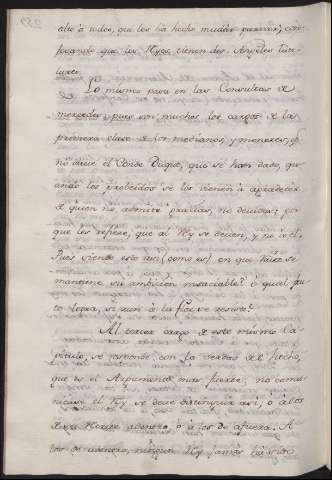 alto à todos, que les ha hecho mudar parecer, con-
fesando que los Reyes tienen dos Angeles tute-
lares.
Lo mismo pasa en las Consultas de
mercedes, pues son muchos los cargos de la
primera clase de los medianos, y menores, q.e
no sabe el Conde Duque, que se han dado, qu-
ando los proveidos se los vienen à agradecer
de quien no admite gracias, no devidas; por
que les refiere, que al Rey se deven, y no à èl.
Pues siendo esto asi (como es) en que falta se
mantiene su ambicion insaciable? ò quel fru-
to logra, si aun à la fee se resiste?
Al tercer cargo de este mismo Ca-
pitulo, se responde, con la verdad del hecho,
que es el Argumento mas fuerte, no comu-
nicase el Rey se deve distinguir asi, ò à los
de su Honor adentro, ò à los de afuera. A
los de adentro, ningun Rey jamas ha sido